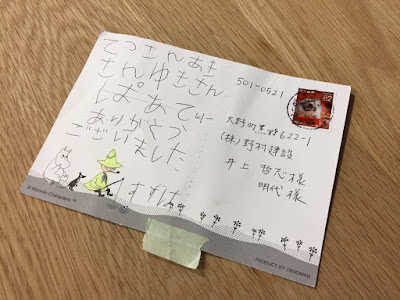 てつさんあき
さんゆきさん
ぱあてぃー
ありがとう
ございました
すずは
501-0521
82
大野町黒野622-1
(株)野村建設
井上 哲志様
明代様
© Moomin Characters™
PRODUCT BY YANOMAN